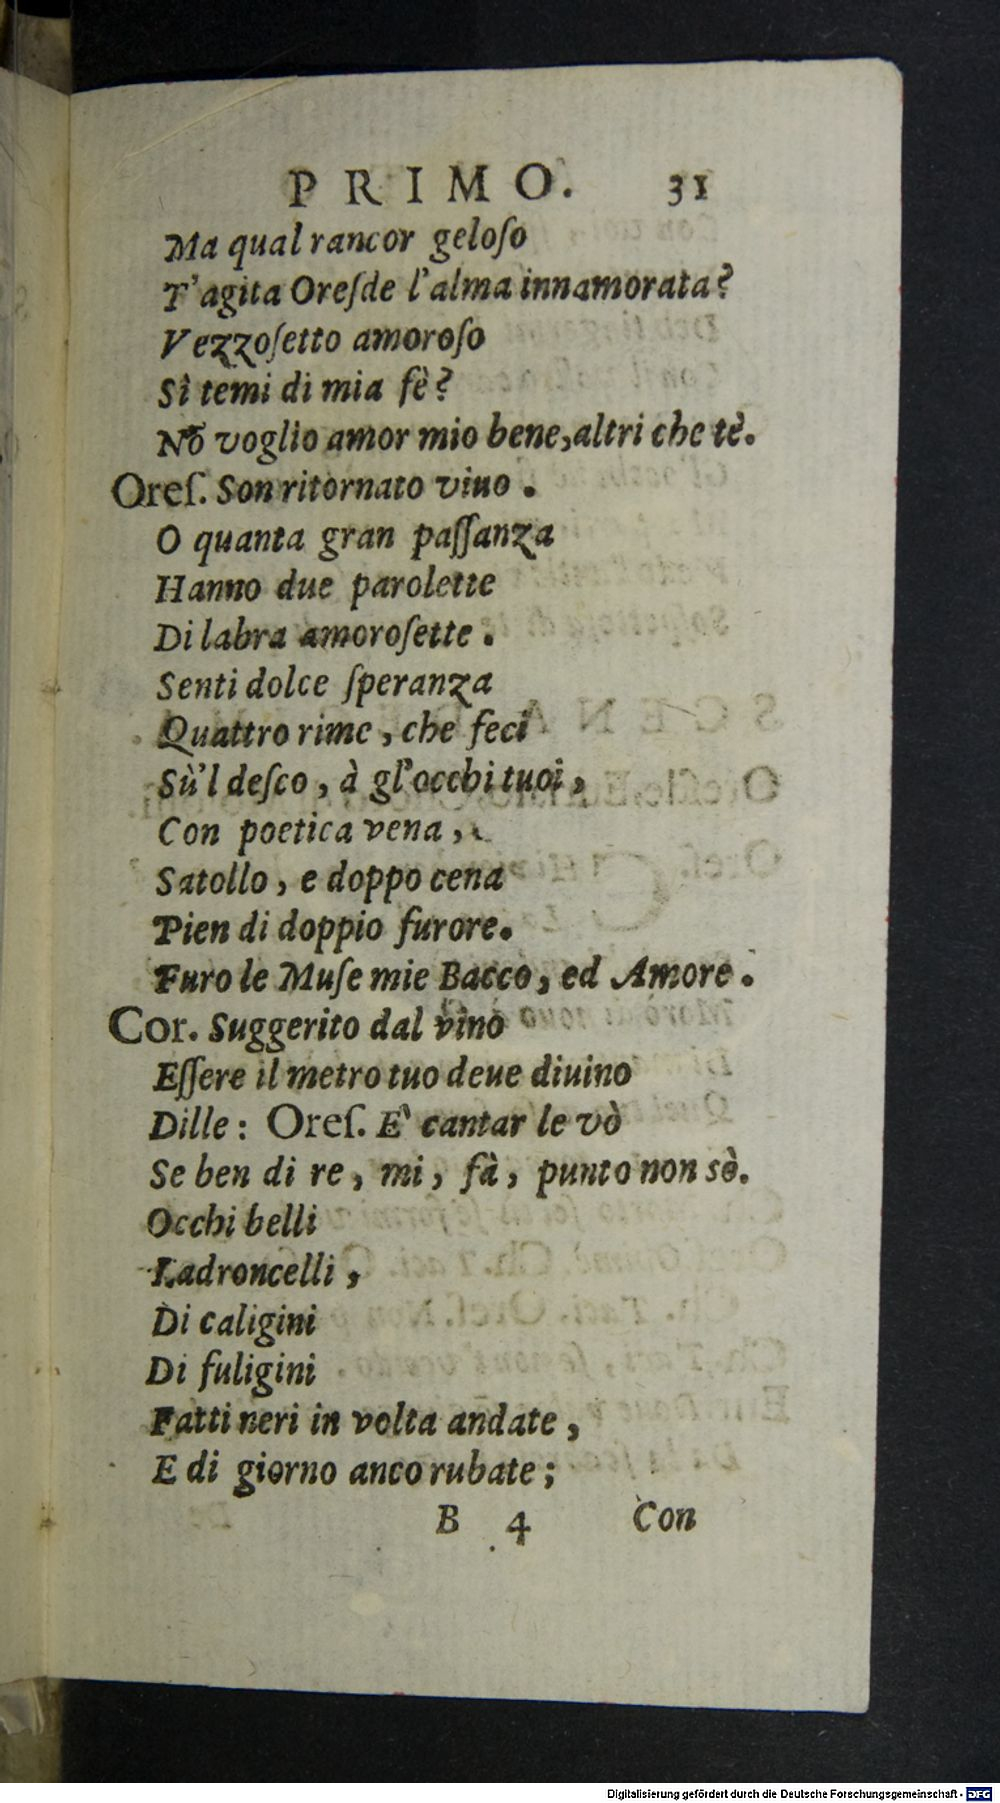 PRIMO. 31
Ma qual rancor geloſo
T'agita Oreſde l'alma innamorata?
Vezzoſetto amoroſo
Sì temi di mia fè?
Nō voglio amor mio bene, altri che tè.
Oreſ. Son ritornato viuo.
O quanta gran paſſanza
Hanno due parolette
Di labra amoroſette.
Senti dolce ſperanza
Quattro rime, che feci
Sù'l deſco, à gl'occhi tuoi,
Con poetica vena,
Satollo, e doppo cena
Pien di doppio furore.
Furo le Muſe mie Bacco, ed Amore.
Cor. Suggerito dal vino
Eſſere il metro tuo deue diuino
Dille: Oreſ. E' cantar le vò
Se ben di re, mi, fà, punto non sò.
Occhi belli
Ladroncelli,
Di caligini
Di fuligini
Fatti neri in volta andate,
E di giorno anco rubate;
B 4 Con
Digitalisierung gefördert durch die Deutsche Forschungsgemeinschaft - DFG